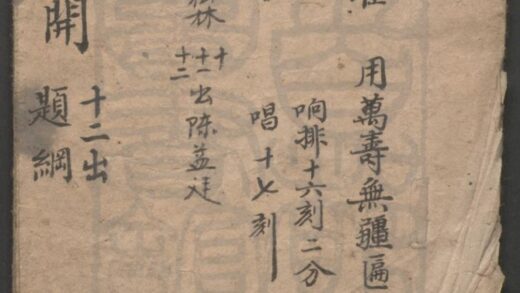 用萬壽無疆匾
响排十六刻二分
唱十七刻
十
十一
十二
出陈益廷
開
十二出
題綱